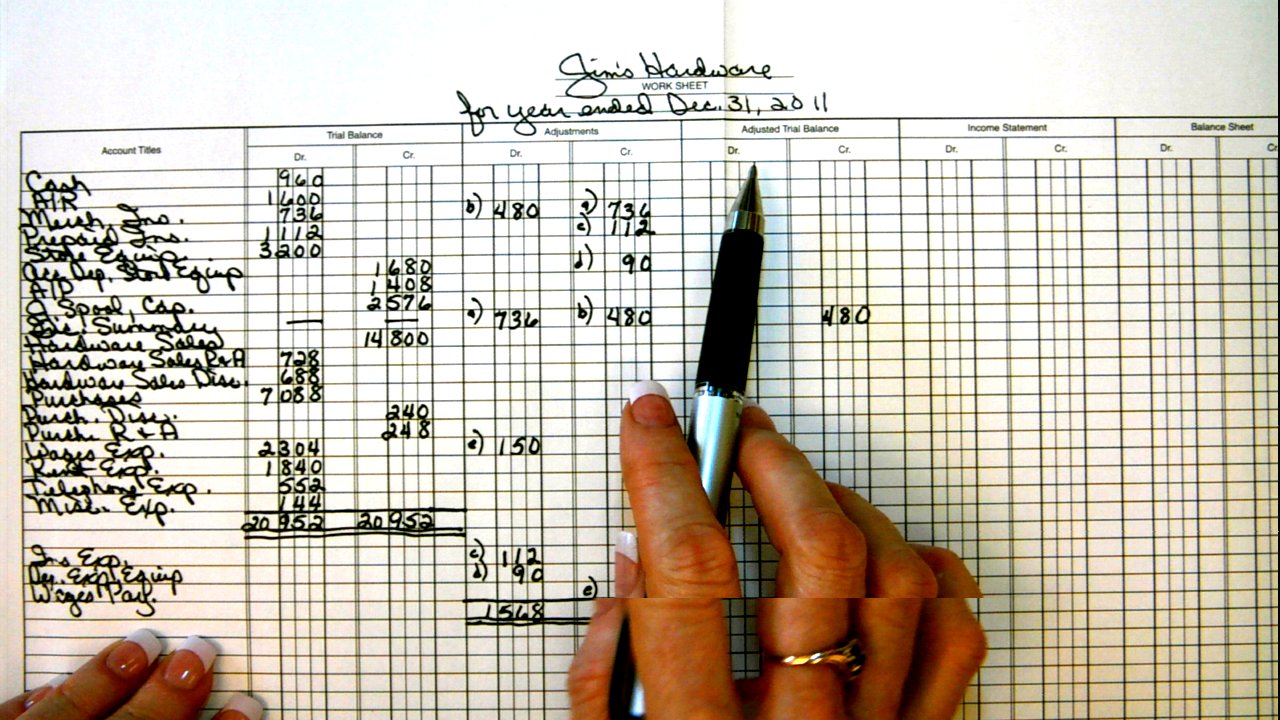 Jim's Hardware
WORK SHEET
for year ended Dec. 31, 2011
Account Titles Trial Balance Adjustments Adjusted Trial Balance Income Statement Balance Sheet
Dr. Cr. Dr. Cr. Dr. Cr. Dr. Cr. Dr. Cr
Cash 960
A/R 1600
Merch. Inv. 736 b) 480 a) 736
Prepaid Ins. 1112 c) 112
Store Equip. 3200
Acc. Dep. Store Equip 1680 d) 90
A/P 1408
O. Spool, Cap. 2576
Inc. Summary — — a) 736 b) 480 480
Hardware Sales 14800
Hardware Sales R&A 728
Hardware Sales Disc. 688
Purchases 7088
Purch. Disc. 240
Purch. R & A 248
Wages Exp. 2304 e) 150
Rent Exp. 1840
Telephone Exp. 552
Misc. Exp. 144
20952 20952
Ins Exp. c) 112
Dep. Exp. Equip d) 90
Wages Pay. e)
1568